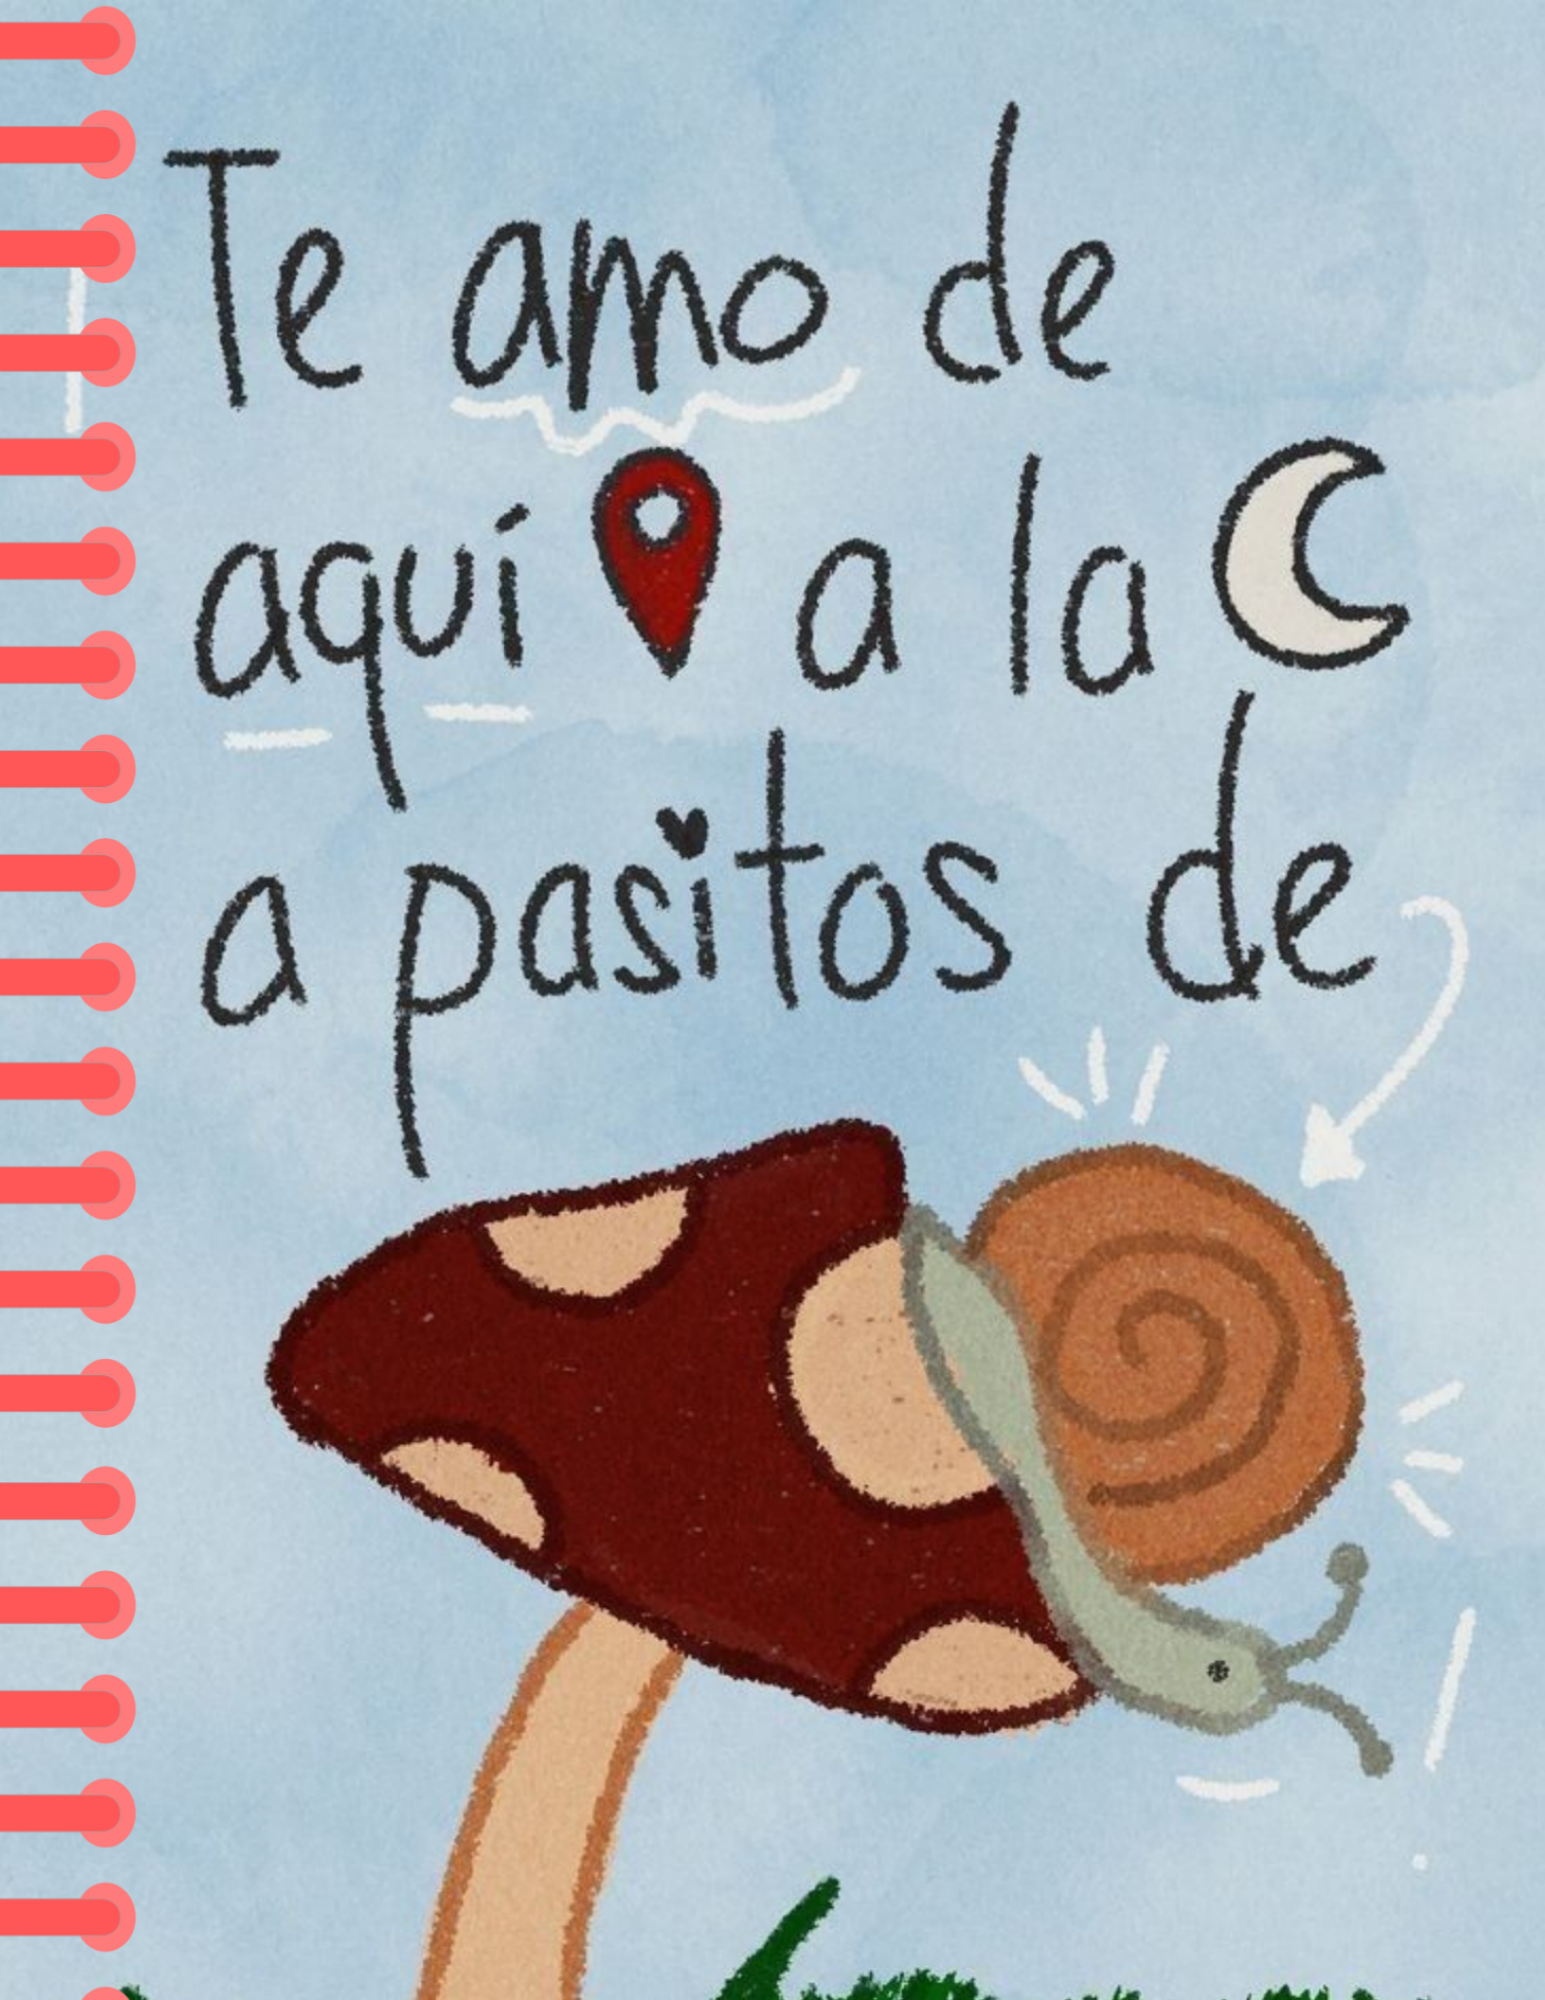 Te amo de
aquí a la
a pasitos de